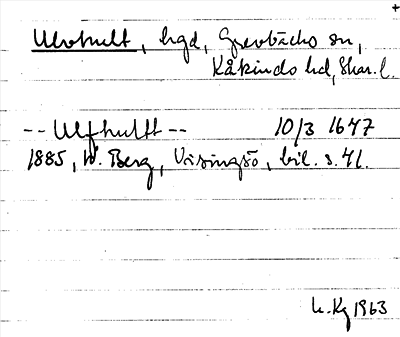 +
Ulvhult, hgd, Grevbäcks sn,
Kåkinds hd, Skar. l.
-- Ulfhultt -- 10/3 1647
1885, W. Berg, Visingsö, bil. s. 41.
1963